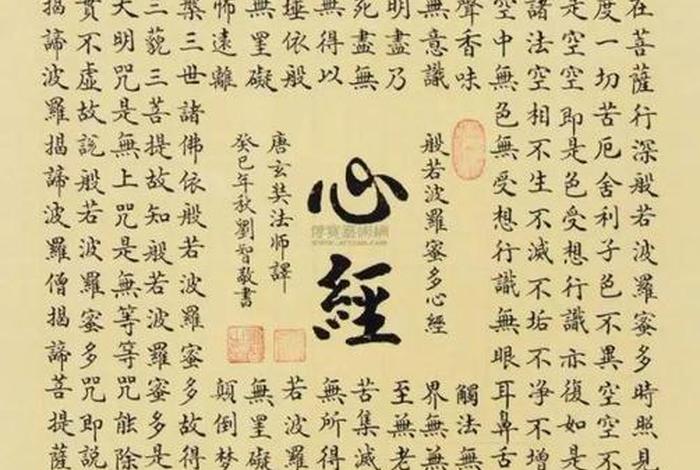 在菩薩行深般若波羅蜜多時照見
度一切苦厄舍利子色不異空空不
是空空即是色受想行識亦復如是
諸法空相不生不滅不垢不淨不增
空中無色無受想行識無眼耳鼻舌
聲香味
觸法無
無意識
界無無
明盡乃
至無老
死盡無
苦集滅
無得以
無所得
埵依般
若波羅
無罣礙
無罣礙
怖遠離
顛倒夢
槃三世諸佛依般若波羅蜜多故得
三藐三菩提故知般若波羅蜜多是
大明咒是無上咒是無等等咒能除
實不虛故說般若波羅蜜多咒即說
揭諦波羅揭諦波羅僧揭諦菩提薩
般若波羅蜜多心經
心經
唐玄奘法師譯
癸巳年秋劉智敬書